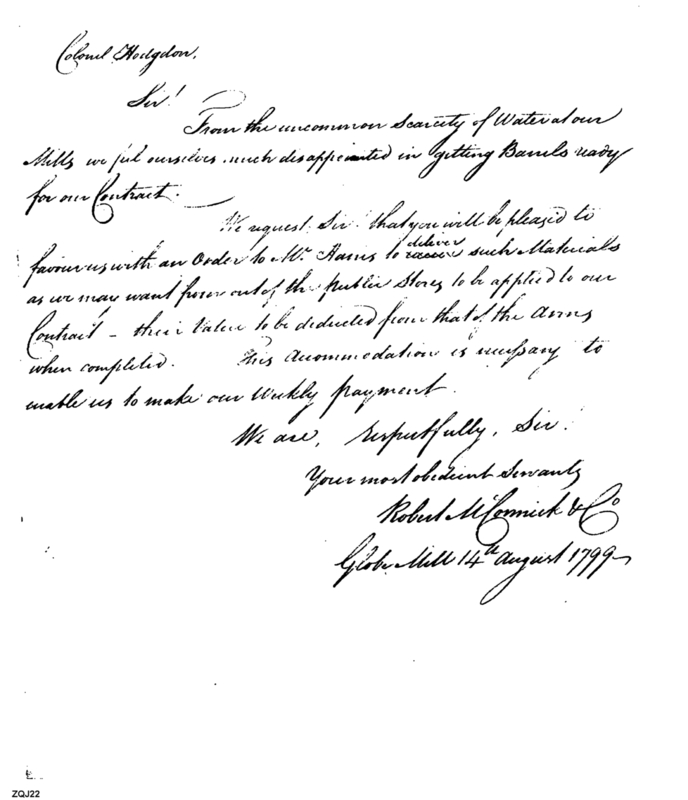 Colonel Hodgdon.
Sir!
From the uncommon scarcity of Water at our
Mills we feel ourselves much disappointed in getting Barrels ready
for our Contract.
We request Sir! that you will be pleased to
deliver
favour us with an Order to Mr. Harris to such Materials
as we may want from out of the Public Stores to be applied to our
Contract – their Value to be deducted from that of the Arms
when completed. This Accommodation is necessary to
enable us to make our Weekly payment.
We are, respectfully, Sir.
Your most obedient Servants
Robert McCormick & Co
Globe Mill 14th August 1799
E.
ZQJ22